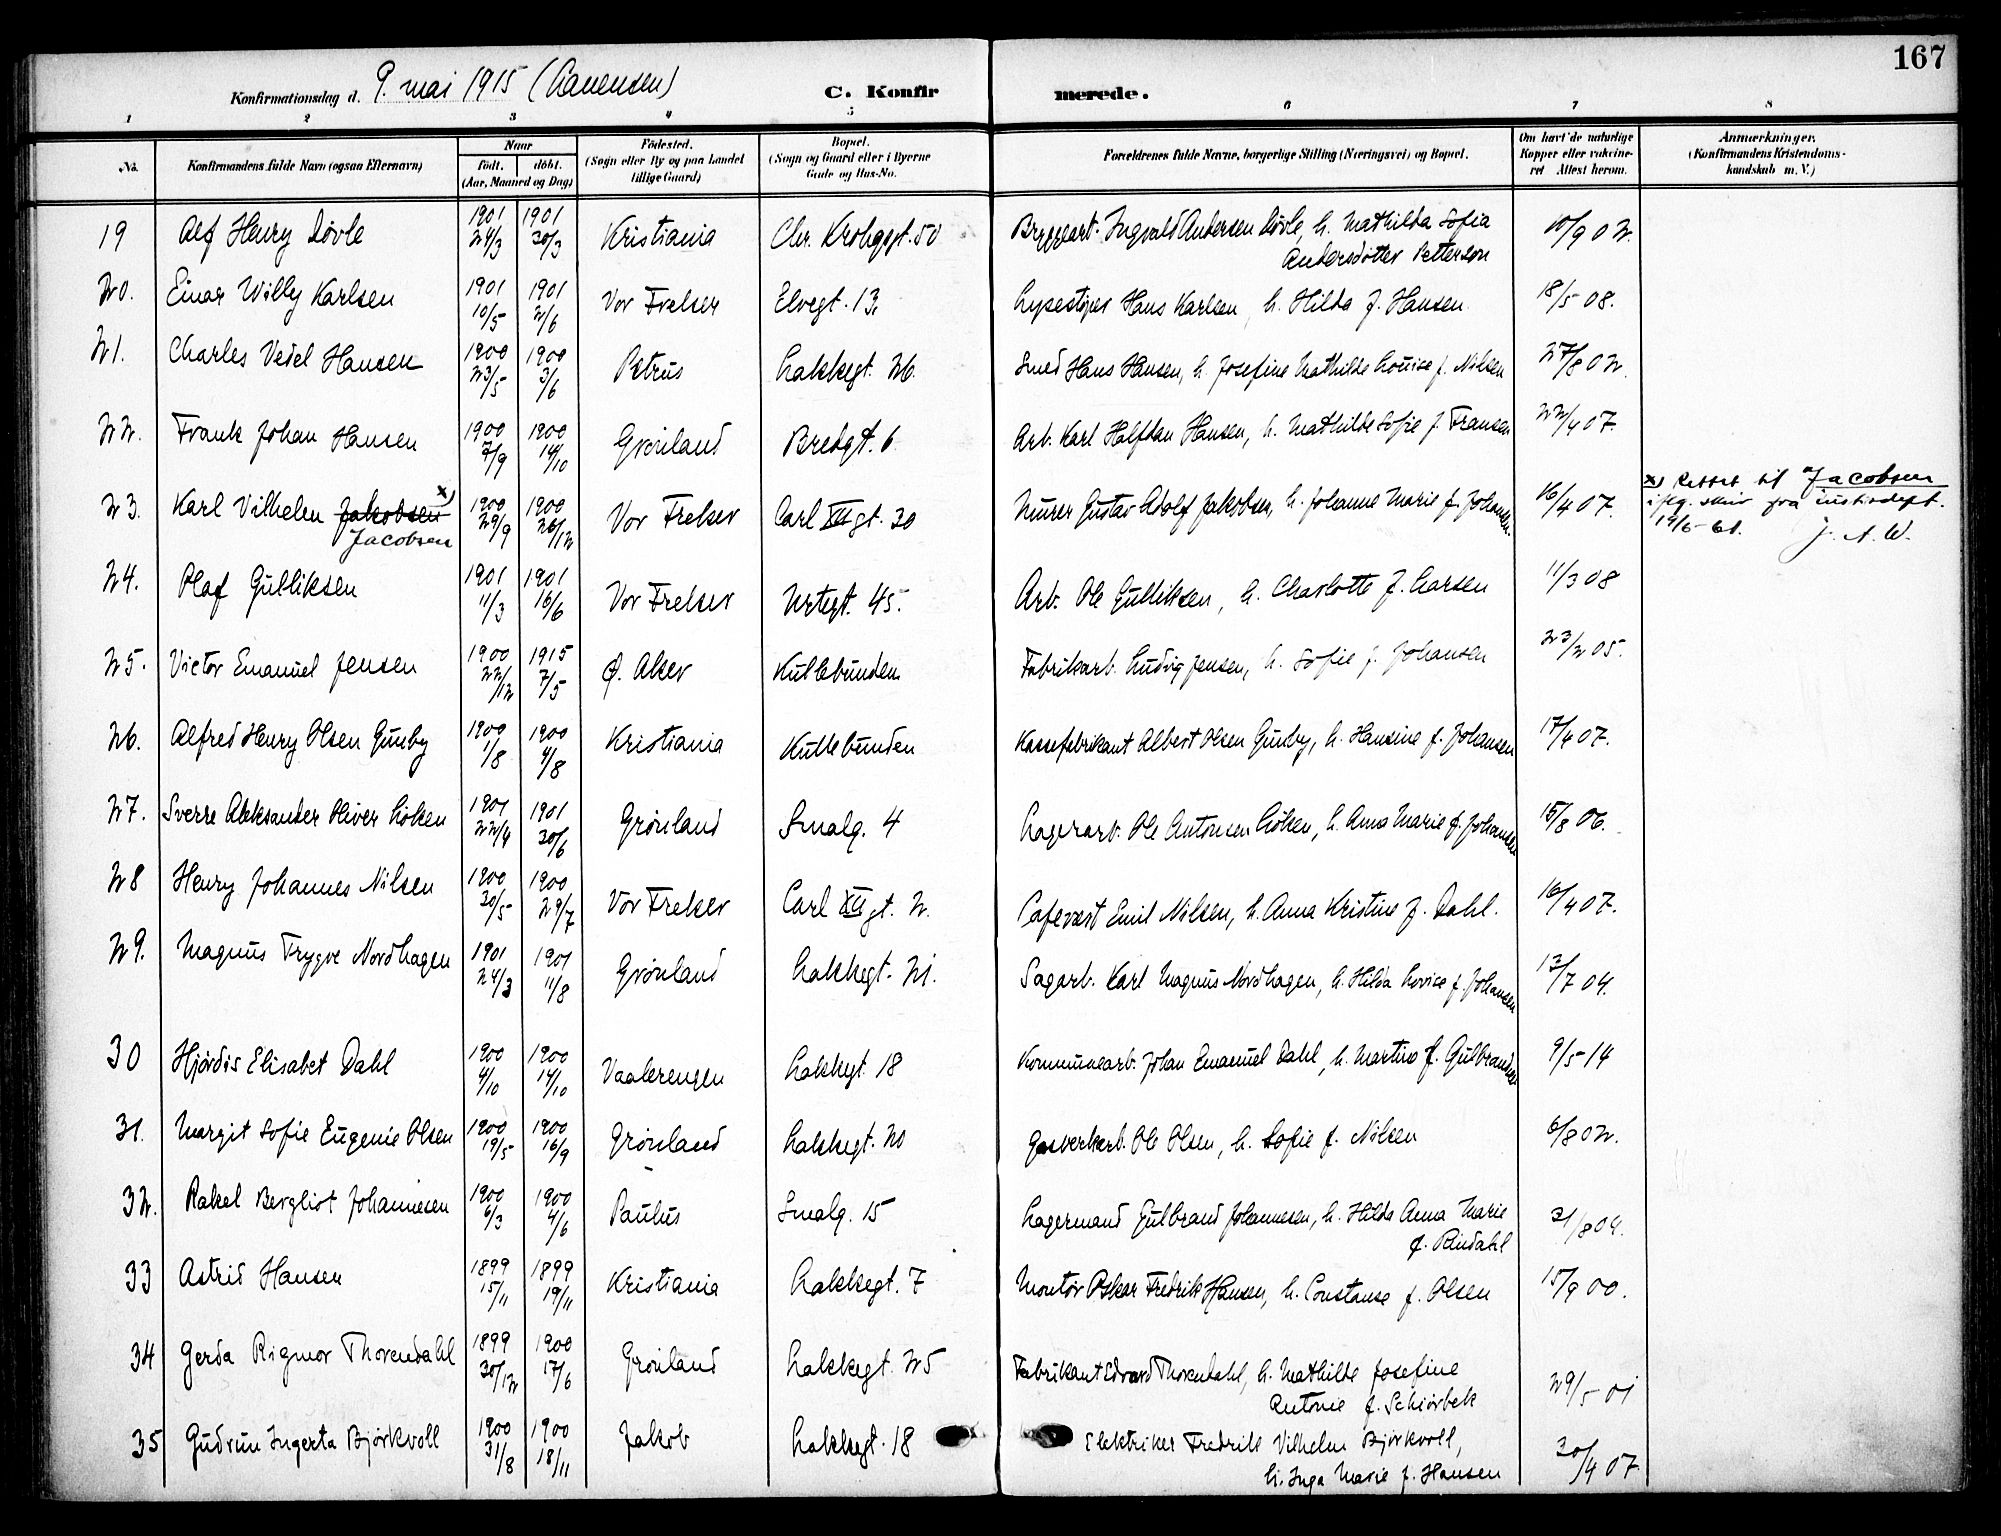 167
Konfirmationsdag d. 9. mai 1915
C. Konfirmerede.
1 2 3 4 5 6 7 8
No.
Konfirmandens fulde Navn (ogsaa Efternavn)
Naar
født. døbt.
(Aar, Maaned og Dag)
Fødested.
(Sogn eller By og paa Landet
tillige Gaard)
Bopæl.
(Sogn og Gaard eller i Byerne
Gade og Hus-No.
Forældrenes fulde Navne, borgerlige Stilling (Næringsvei) og Bopæl.
Om havt de naturlige
Kopper eller vaccine-
ret Attest herom.
Anmærkninger.
(Konfirmandens Kristendoms-
kundskab m. V.)
19 Alf Henry Løvle 1901 24/3 1901 30/3 Kristiania Chr. Krohgsgt. 50 Bryggeart. Ingvald Andersen Løvle, h. Mathilda Sofia
Andersdotter Petterson 10/9 02.
20. Einar Willy Karlsen 1901 10/5 1901 2/6 Vor Frelser Elvegt. 13. Lysestøper Hans Karlsen, h. Hilda f. Hansen. 18/5 08.
21. Charles Vedel Hansen 1900 23/5 1900 3/6 Petrus Lakkegt. 26. Smed Hans Hansen, h. Josefine Mathilde Louise f. Nilsen 27/8 02.
22. Frank Johan Hansen 1900 7/9 1900 14/10 Grønland Bredgt. 6 Arb. Karl Halfdan Hansen, h. Mathilde Sofie f. Fransen 22/4 07.
23. Karl Vilhelm Jakobsen x) 1900 29/9 1900 26/12 Vor Frelser Carl XII gt. 30 Murer Gustav Adolf Jakobsen, h. Johanne Marie f. Johansen. 16/4 07. x) Rettet til Jacobsen
Jacobsen
iflg. skriv fra justisdept.
19/6-61. J. A. W.
24. Olaf Gulliksen 1901 11/3 1901 16/6 Vor Frelser Urtegt. 45. Arb. Ole Gulliksen, h. Charlotte f. Larsen 11/3 08
25. Victor Emanuel Jensen 1900 22/12 1915 7/5 Ø. Aker Kullebunden Fabrikarb. Ludvig Jensen, h. Sofie f. Johansen 23/2 05.
26. Alfred Henry Olsen Gunby 1900 1/8 1900 4/8 Kristiania Kullebunden Kassefabrikant Albert Olsen Gunby, h. Hansine f. Johansen 17/4 07.
27. Sverre Aleksander Oliver Løken 1901 22/4 1901 30/6 Grønland Smalg. 4 Lagerarb. Ole Antonsen Løken, h. Anna Marie f. Johansen 15/8 06.
28 Henry Johannes Nilsen 1900 30/5 1900 29/7 Vor Frelser Carl XII gt. 2. Cafevært Emil Nilsen, h. Anna Kristine f. Dahl. 16/4 07.
29. Magnus Trygve Nordhagen 1901 24/3 1901 11/8 Grønland Lakkegt. 21. Sagarb. Karl Magnus Nordhagen, h. Hilda Lovise f. Johansen 13/7 04.
30 Hjørdis Elisabet Dahl 1900 4/10 1900 14/10 Vaalerengen Lakkegt. 18 Kommunearb. Johan Emanuel Dahl, h. Martine f. Gulbrandsen 9/5-14
31. Margit Sofie Eugenie Olsen 1900 19/5 1900 16/9 Grønland Lakkegt. 20 Gasverkarb. Ole Olsen, h. Sofie f. Nilsen 6/8 02.
32. Rakel Bergliot Johannesen 1900 6/3 1900 4/6 Paulus Smalg. 15 Lagermand Gulbrand Johannesen, h. Hilda Anna Marie
f. Rindahl 31/8 04.
33 Astrid Hansen 1899 15/11 1899 19/11 Kristiania Lakkegt. 7 Montør Oskar Fredrik Hansen, h. Constanse f. Olsen 15/9 00.
34 Gerda Rigmor Thorendahl 1899 30/12 1900 17/6 Grønland Lakkegt. 25 Fabrikant Edvard Thorendahl, h. Mathilde Josefine
Antonie f. Schiørbek 29/5 01
35 Gudrun Ingerta Bjørkvoll 1900 31/8 1900 18/11 Jakob Lakkegt. 18 Elektriker Fredrik Vilhelm Bjørkvoll,
h. Inga Marie f. Hansen 30/4 07